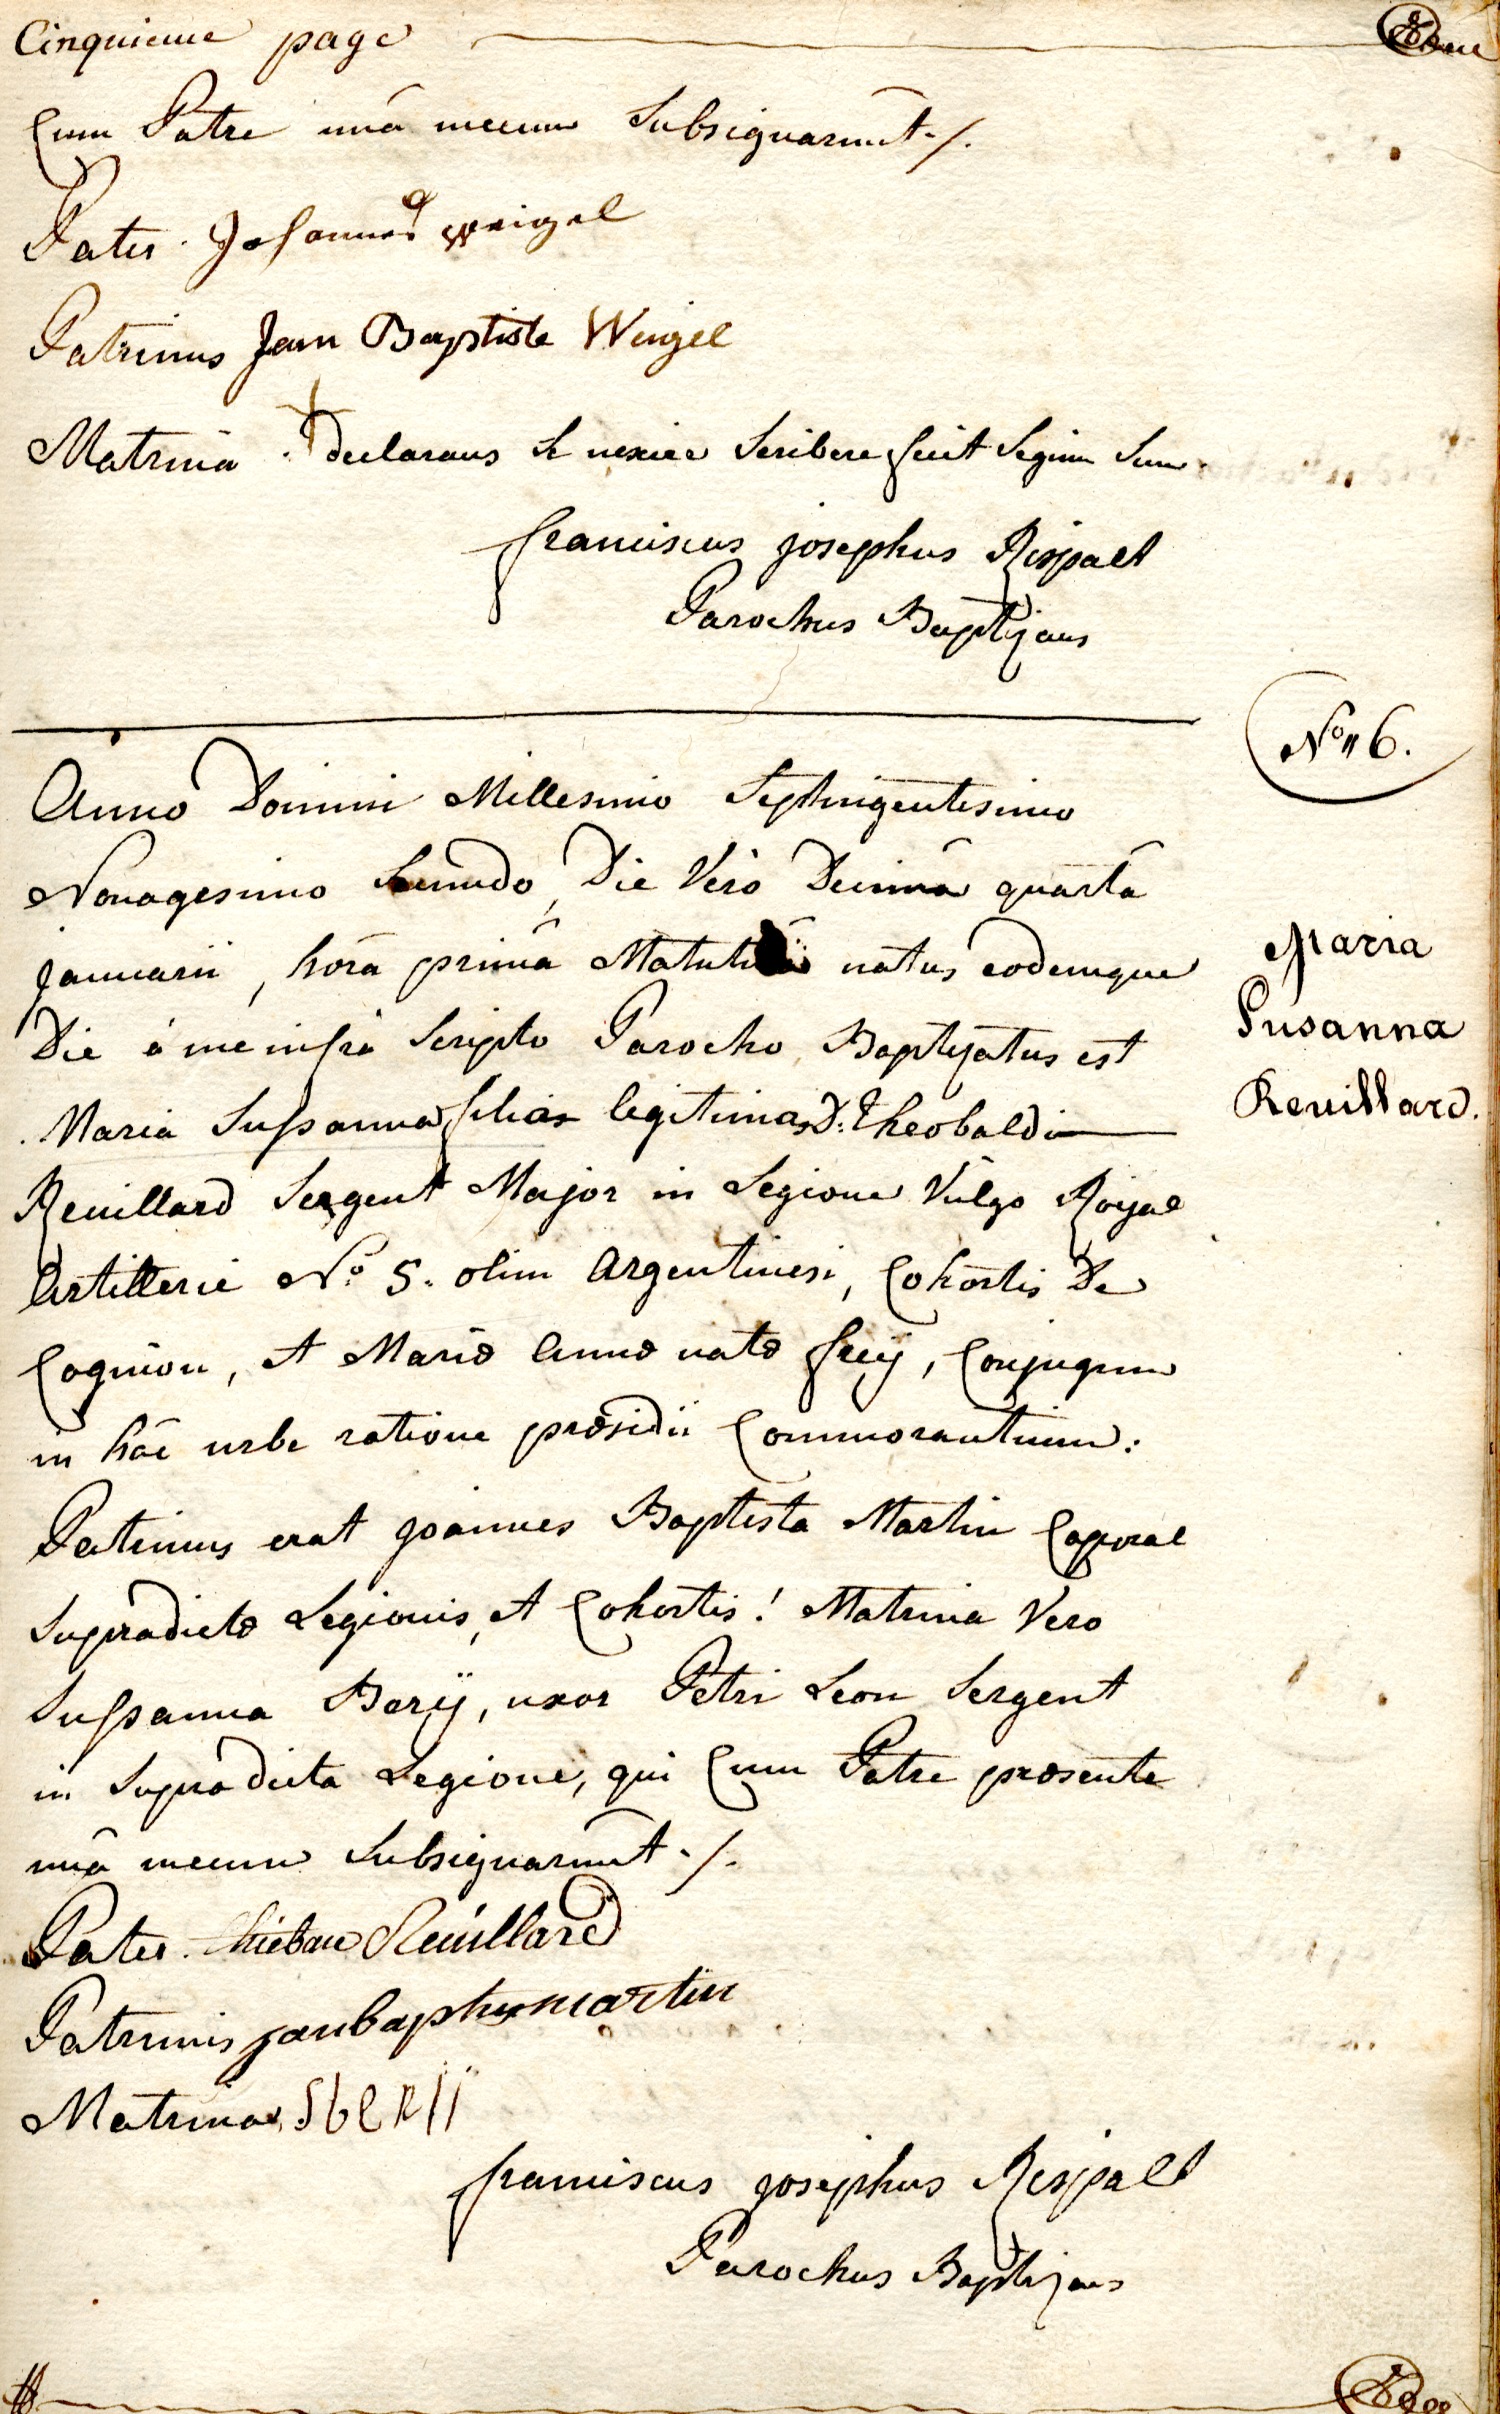 Cinquieme page
Cum Patre unâ mecum Subsignarunt ./.
Pater . Johannes Weigel
Patrinus Jean Baptiste Weigel
Matrina . declarans se nescire Scribere fecit Signum Suum.
franciscus josephus Rispalt
Parochus Baptizans
N° 6.
Anno Domini Millesimo Septingentesimo
Nonagesimo Secundo, Die Verò Decimâ quartâ
januarii, horâ primâ Matutinâ natus eodemque
Die à me infrà Scripto Parocho Baptizatus est
Maria Sussanna filia legitima D: Theobaldi
Reuillard Sergent Major in Legione Vulgo Roÿal
Artillerie N° 5. olim Argentinesi, Cohortis De
Cognion, et Mariæ Annæ natæ freÿ, Conjugum
in hâc urbe ratione præsidii Commorantium:
Patrinus erat joannes Baptista Martin Caporal
Supradictæ Legionis, et Cohortis! Matrina Vero
Sussanna Berÿ, uxor Petri Leon Sergent
in Supradicta Legione, qui Cum Patre præsente
unâ mecum Subsignarunt ./.
Pater . thiebau Reuillard
Patrinus janbaptis martin
Matrina SbERII
franciscus josephus Rispalt
Parochus Baptizans
Maria
Susanna
Reuillard.